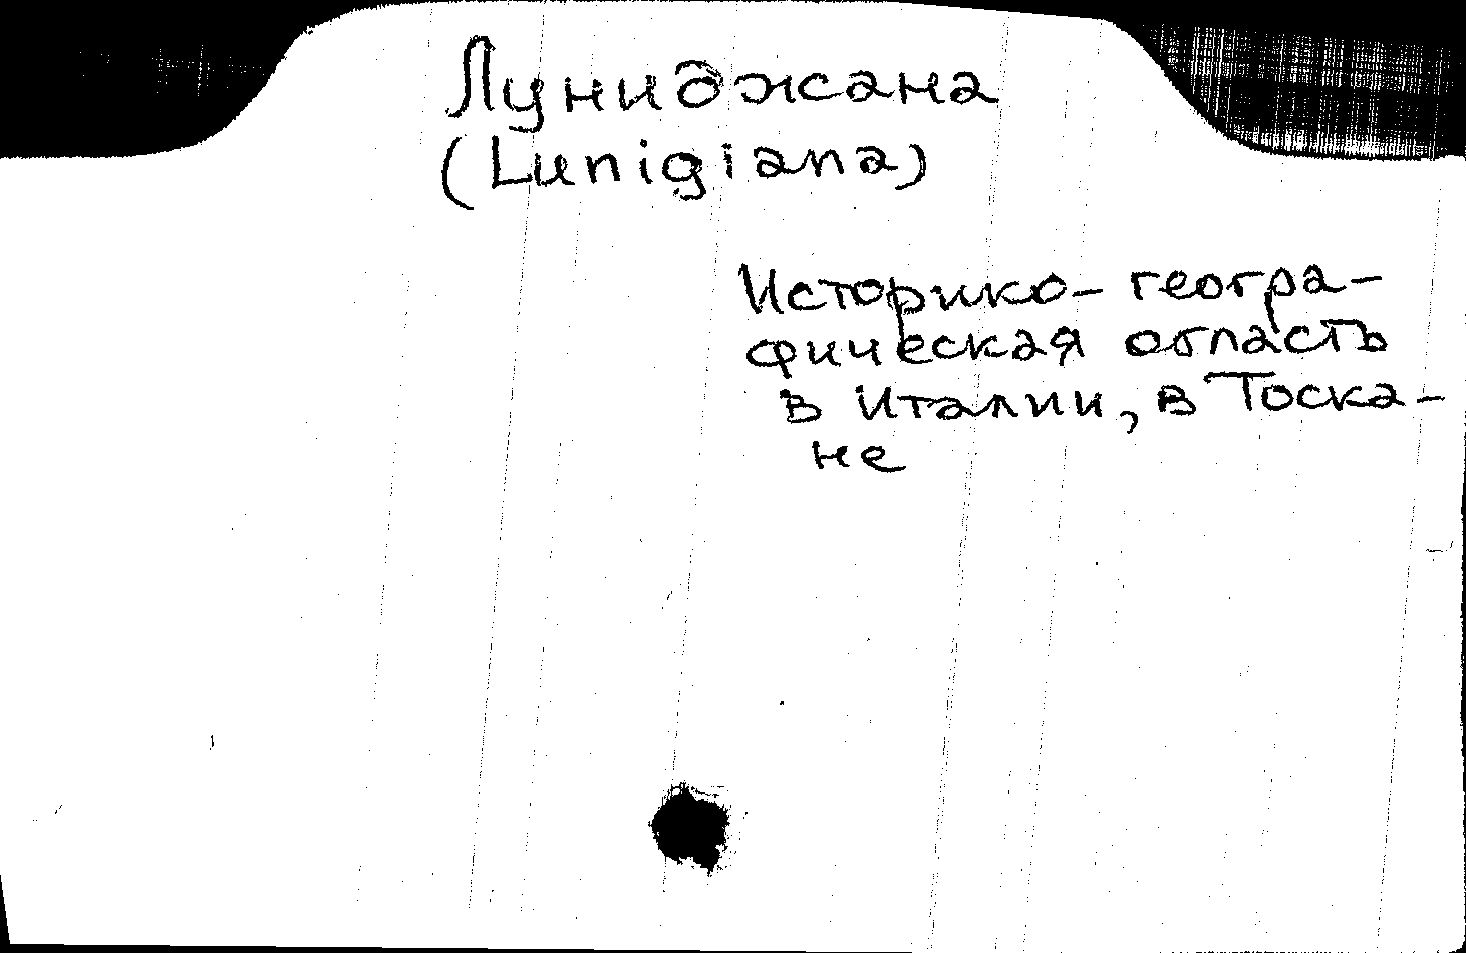 Луниджана
(Lunigiana)
Историко-геогра-
фическая область
в Италии, в Тоска-
не